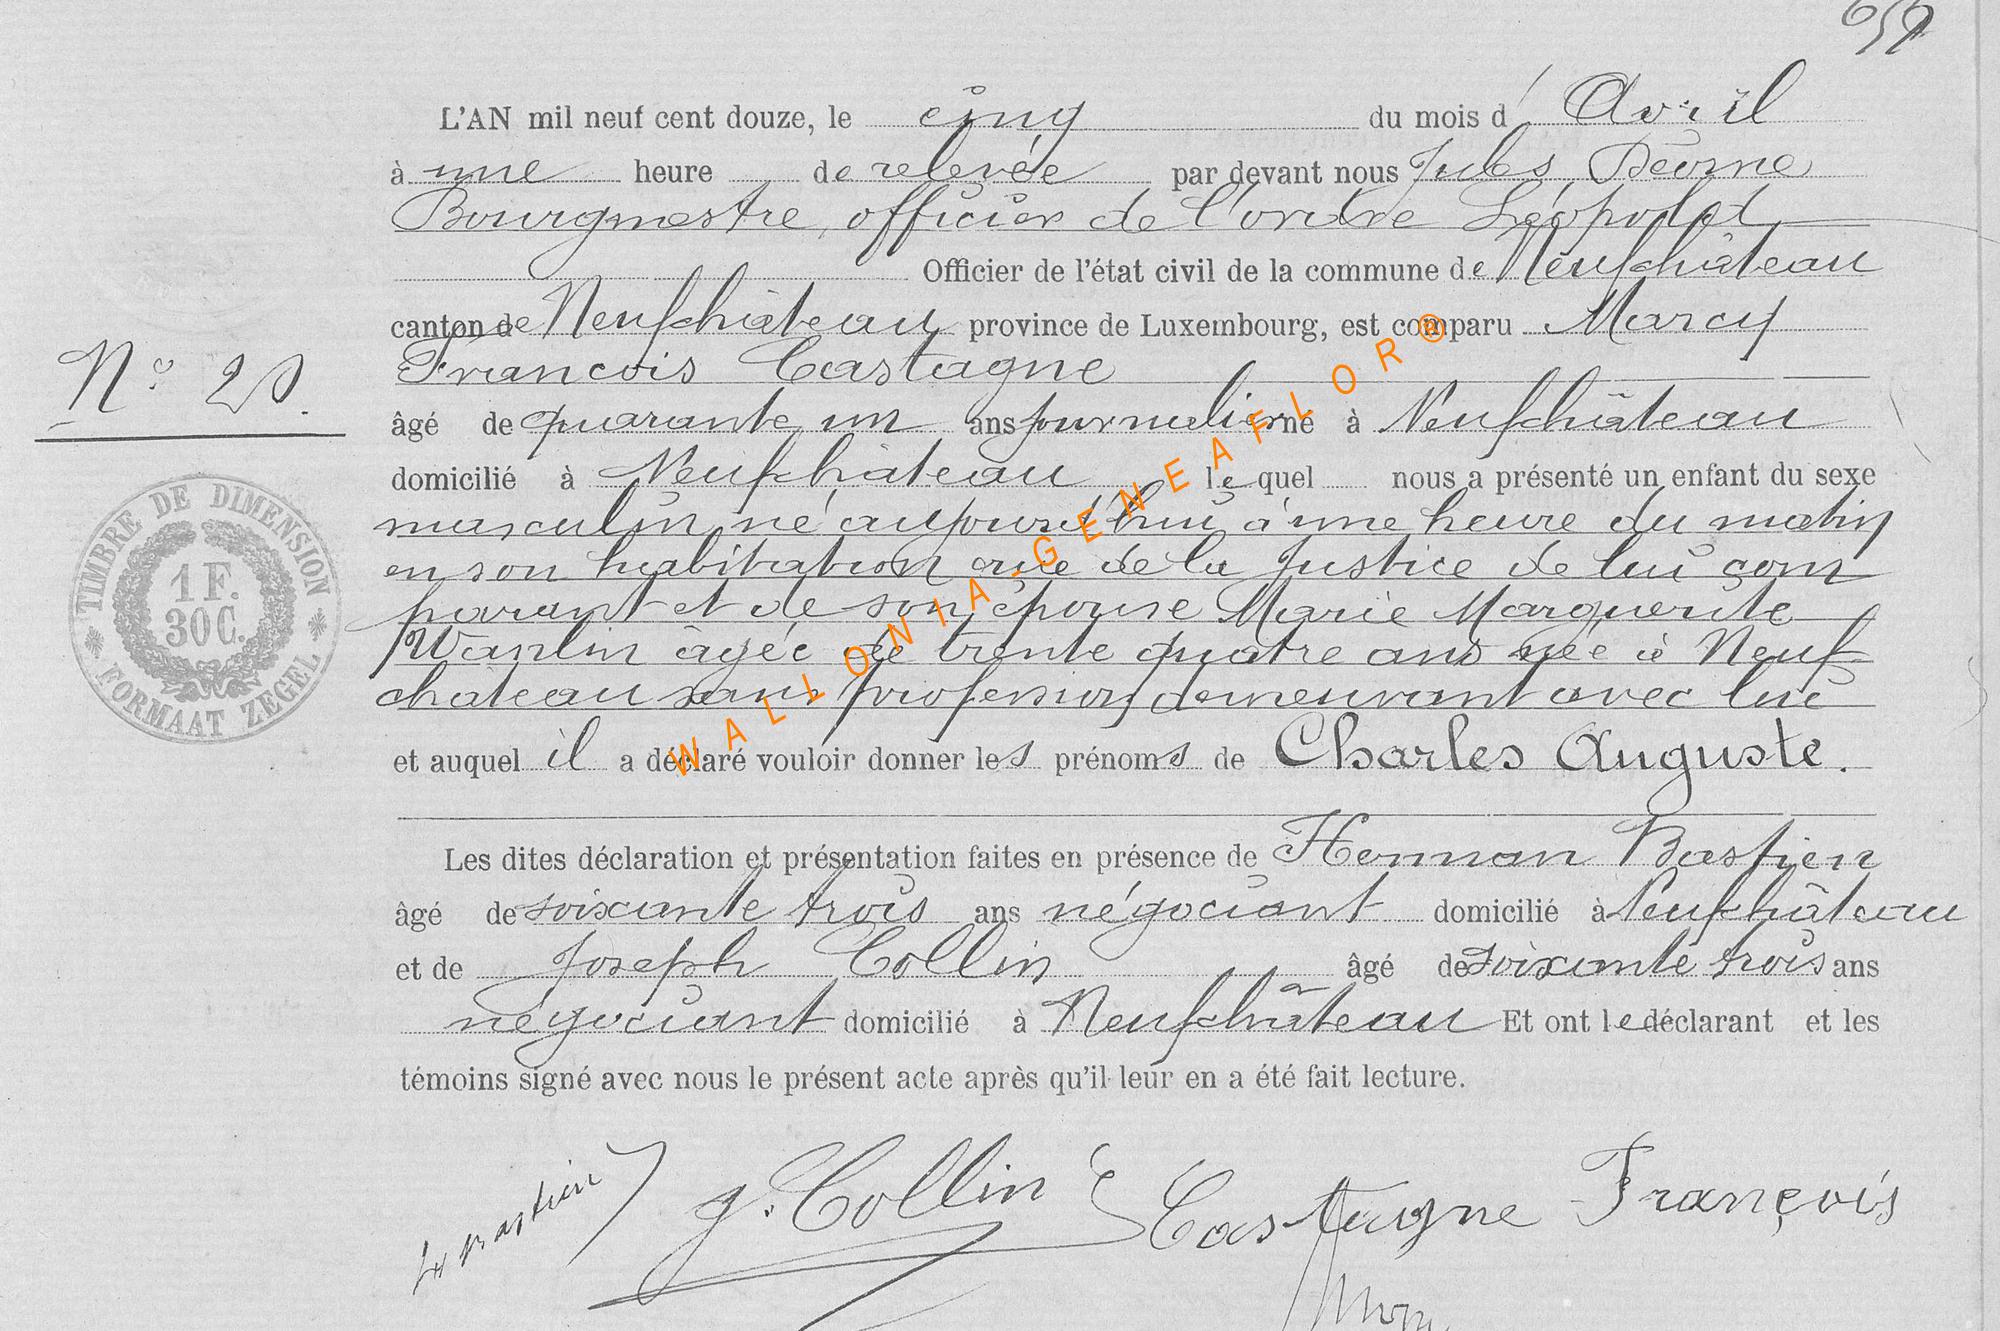 L'AN mil neuf cent douze, le cinq du mois d' Avril
à une heure de relevée par devant nous Jules
Bourgmestre, officier de l'ordre Léopold
Officier de l'état civil de la commune de Neufchâteau
canton de Neufchâteau province de Luxembourg, est comparu Marcy
François Castagne
Nº
âgé de quarante un ans journalier né à Neufchâteau
domicilié à Neufchâteau lequel nous a présenté un enfant du sexe
masculin, né aujourd'hui à une heure du matin
en son habitation rue de la Justice de lui com
parant et de son épouse Marie Marguerite
Wanlin âgée de trente quatre ans née à Neuf
chateau sans profession demeurant avec lui
et auquel il a déclaré vouloir donner les prénoms de Charles Auguste.
Les dites déclaration et présentation faites en présence de Herman Bastien
âgé de soixante trois ans négociant domicilié à Neufchâteau
et de Joseph Collin âgé de soixante trois ans
négociant domicilié à Neufchâteau Et ont le déclarant et les
témoins signé avec nous le présent acte après qu'il leur en a été fait lecture.
TIMBRE DE DIMENSION
1 F.
30 C.
FORMAAT ZEGEL
WALLONIA-GENEAFLOR®
H Bastien J. Collin Castagne François